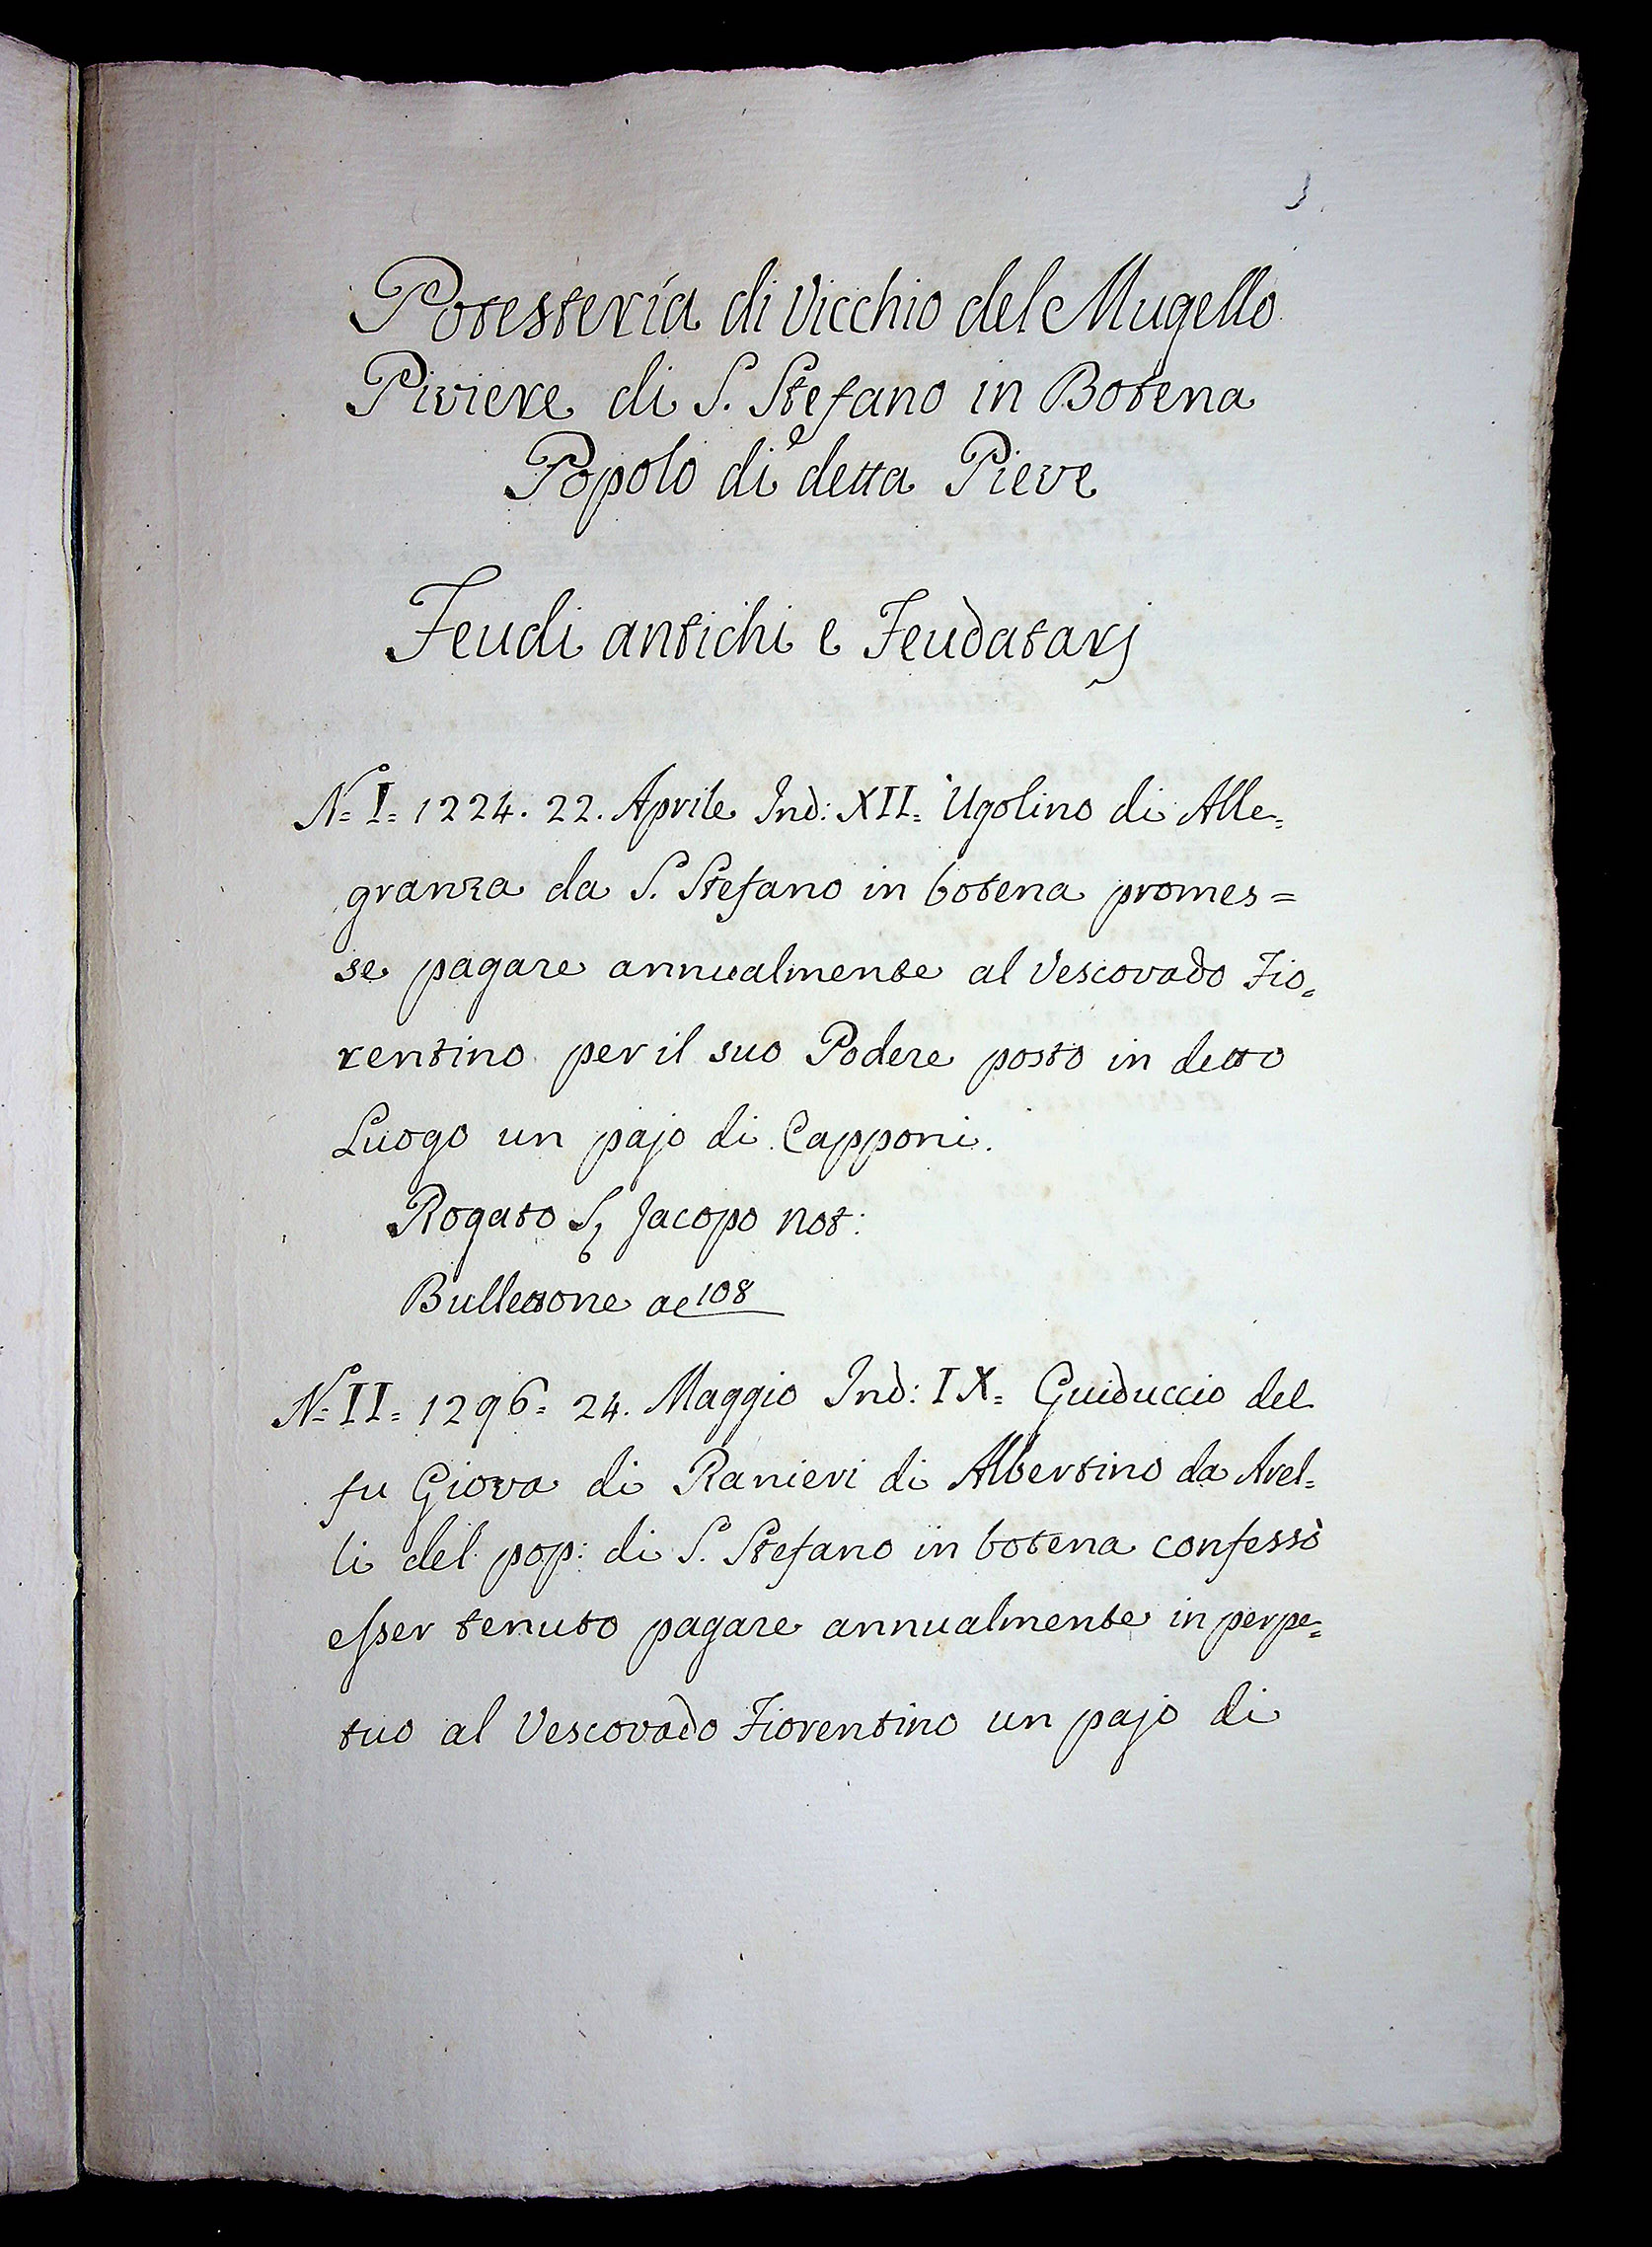 Potesteria di Vicchio del Mugello
Piviere di S. Stefano in Botena
Popolo di detta Pieve
Feudi antichi e Feudatarj
N.º I= 1224. 22. Aprile Ind: XII= Ugolino di Alle=
granza da S. Stefano in botena promes=
se pagare annualmente al Vescovado Fio=
rentino per il suo Podere posto in detto
Luogo un pajo di Capponi.
Rogato Sr Jacopo Not:
Bullettone ac 108
N.º II= 1296= 24. Maggio Ind: IX= Guiduccio del
fu Giova di Ranieri di Albertino da Arel=
li del pop: di S. Stefano in botena confessò
esser tenuto pagare annualmente in perpe=
tuo al Vescovado Fiorentino un pajo di